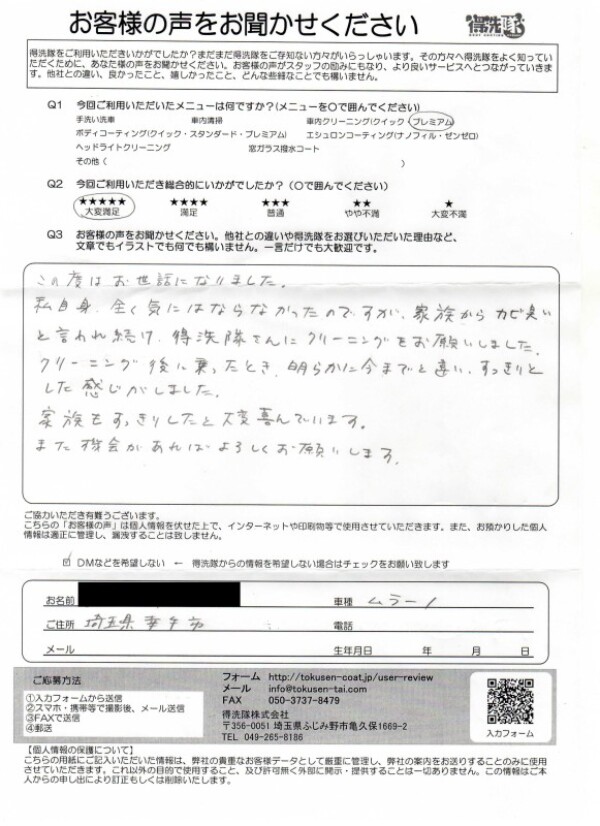 お客様の声をお聞かせください
得洗隊
得洗隊をご利用いただきいかがでしたか？まだまだ得洗隊をご存知ない方々がいらっしゃいます。その方々へ得洗隊をよく知って
いただくために、あなた様の声をお聞かせください。お客様の声がスタッフの励みにもなり、より良いサービスへとつながっていきま
す。他社との違い、良かったこと、嬉しかったこと、どんな些細なことでも構いません。
Q1 今回ご利用いただいたメニューは何ですか？(メニューを〇で囲んでください)
手洗い洗車 車内清掃 車内クリーニング(クイック・プレミアム)
ボディコーティング(クイック・スタンダード・プレミアム) エシュロンコーティング(ナノフィル・ゼンゼロ)
ヘッドライトクリーニング 窓ガラス撥水コート
その他（ ）
Q2 今回ご利用いただき総合的にいかがでしたか？（〇で囲んでください）
★★★★★ ★★★★ ★★★ ★★ ★
大変満足 満足 普通 やや不満 大変不満
Q3 お客様の声をお聞かせください。他社との違いや得洗隊をお選びいただいた理由など、
文章でもイラストでも何でも構いません。一言だけでも大歓迎です。
この度はお世話になりました。
私自身、全く気にはならなかったのですが、家族からカビ臭い
と言われ続け、得洗隊さんにクリーニングをお願いしました。
クリーニング後に乗ったとき、明らかに今までと違い、すっきりと
した感じがしました。
家族もすっきりしたと大変喜んでいます。
また機会があればよろしくお願いします。
ご協力いただき有難うございます。
こちらの「お客様の声」は個人情報を伏せた上で、インターネットや印刷物等で使用させていただきます。また、お預かりした個人
情報は適正に管理し、漏洩することは致しません。
DMなどを希望しない ← 得洗隊からの情報を希望しない場合はチェックをお願い致します
お名前 車種 ムラーノ
ご住所 埼玉県幸手市 電話
メール 生年月日 年 月 日
ご応募方法
①入力フォームから送信
②スマホ・携帯等で撮影後、メール送信
③FAXで送信
④郵送
フォーム http://tokusen-coat.jp/user-review
メール info@tokusen-tai.com
FAX 050-3737-8479
得洗隊株式会社
〒356-0051 埼玉県ふじみ野市亀久保1669-2
TEL 049-265-8186
入力フォーム
【個人情報の保護について】
こちらの用紙にご記入いただいた情報は、弊社の貴重なお客様データとして厳重に管理し、弊社の案内をお送りすることのみに使用
させていただきます。これ以外の目的で使用すること、及び許可無く外部に開示・提供することは一切ありません。この情報はご本
人からの申し出により訂正もしくは削除いたします。